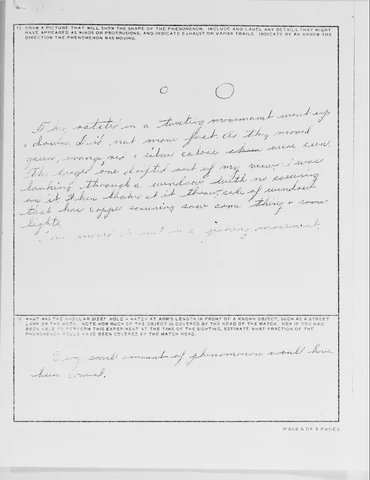 15. DRAW A PICTURE THAT WILL SHOW THE SHAPE OF THE PHENOMENON. INCLUDE AND LABEL ANY DETAILS THAT MIGHT
HAVE APPEARED AS WINGS OR PROTRUSIONS, AND INDICATE EXHAUST OR VAPOR TRAILS. INDICATE BY AN ARROW THE
DIRECTION THE PHENOMENON WAS MOVING.
They rotated in a twisting movement went up
& down & did not move fast. As they moved
green, orange, red & silver colors were seen
The larger one drifted out of my view. I was
looking through a window with no screening
on it then looked at it thru side of window
that has copper screening saw same thing & same
lights.
One moved in a movement,
16. WHAT WAS THE ANGULAR SIZE? HOLD A MATCH AT ARM'S LENGTH IN FRONT OF A KNOWN OBJECT, SUCH AS A STREET
LAMP OR THE MOON. NOTE HOW MUCH OF THE OBJECT IS COVERED BY THE HEAD OF THE MATCH. NOW IF YOU HAD
BEEN ABLE TO PERFORM THIS EXPERIMENT AT THE TIME OF THE SIGHTING, ESTIMATE WHAT FRACTION OF THE
PHENOMENON WOULD HAVE BEEN COVERED BY THE MATCH HEAD.
Very small amount of phenomenon would have
been covered.
PAGE 6 OF 9 PAGES